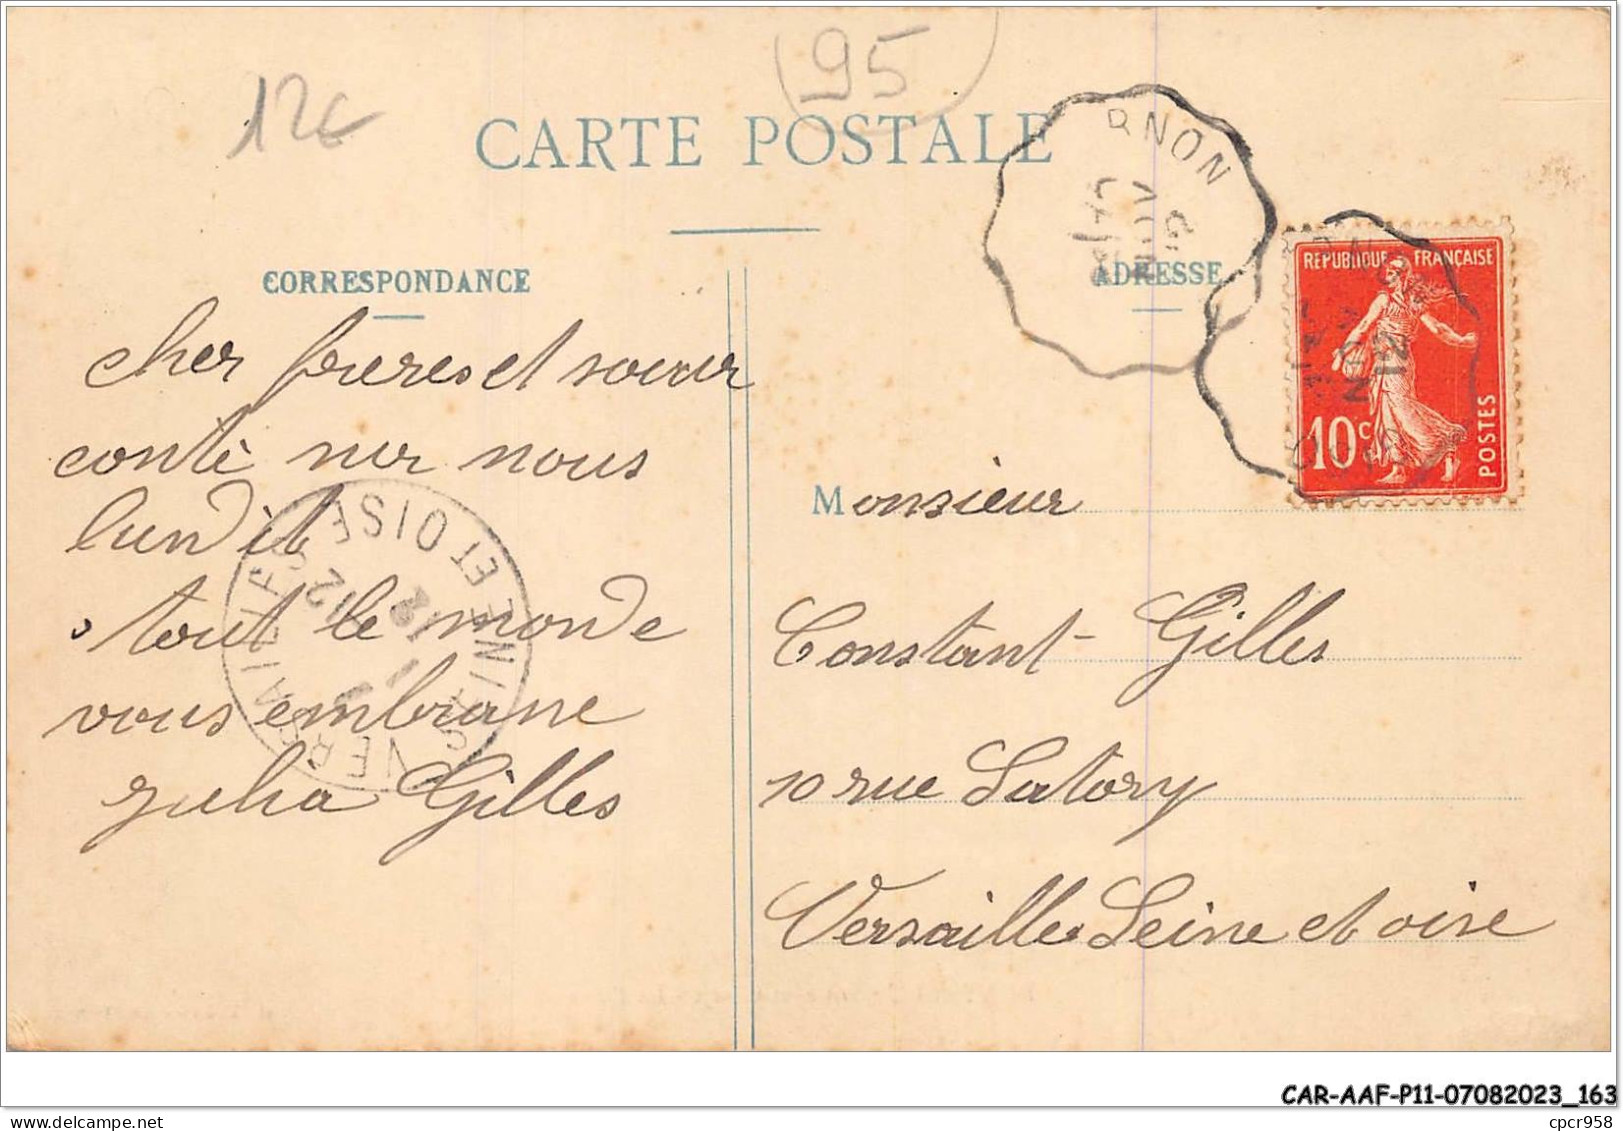 12€
95
CARTE POSTALE
CORRESPONDANCE
ADRESSE
RNON
REPUBLIQUE FRANÇAISE
10c
POSTES
cher freres et soeur
conté ner nous
lundit
tout le monde
vous embrane
julia Gilles
VERSAILLES
SEINE ET OISE
Monsieur
Constant Gilles
10 rue Satory
Versailles Seine et oise
CAR-AAF-P11-07082023_163
cpcr958